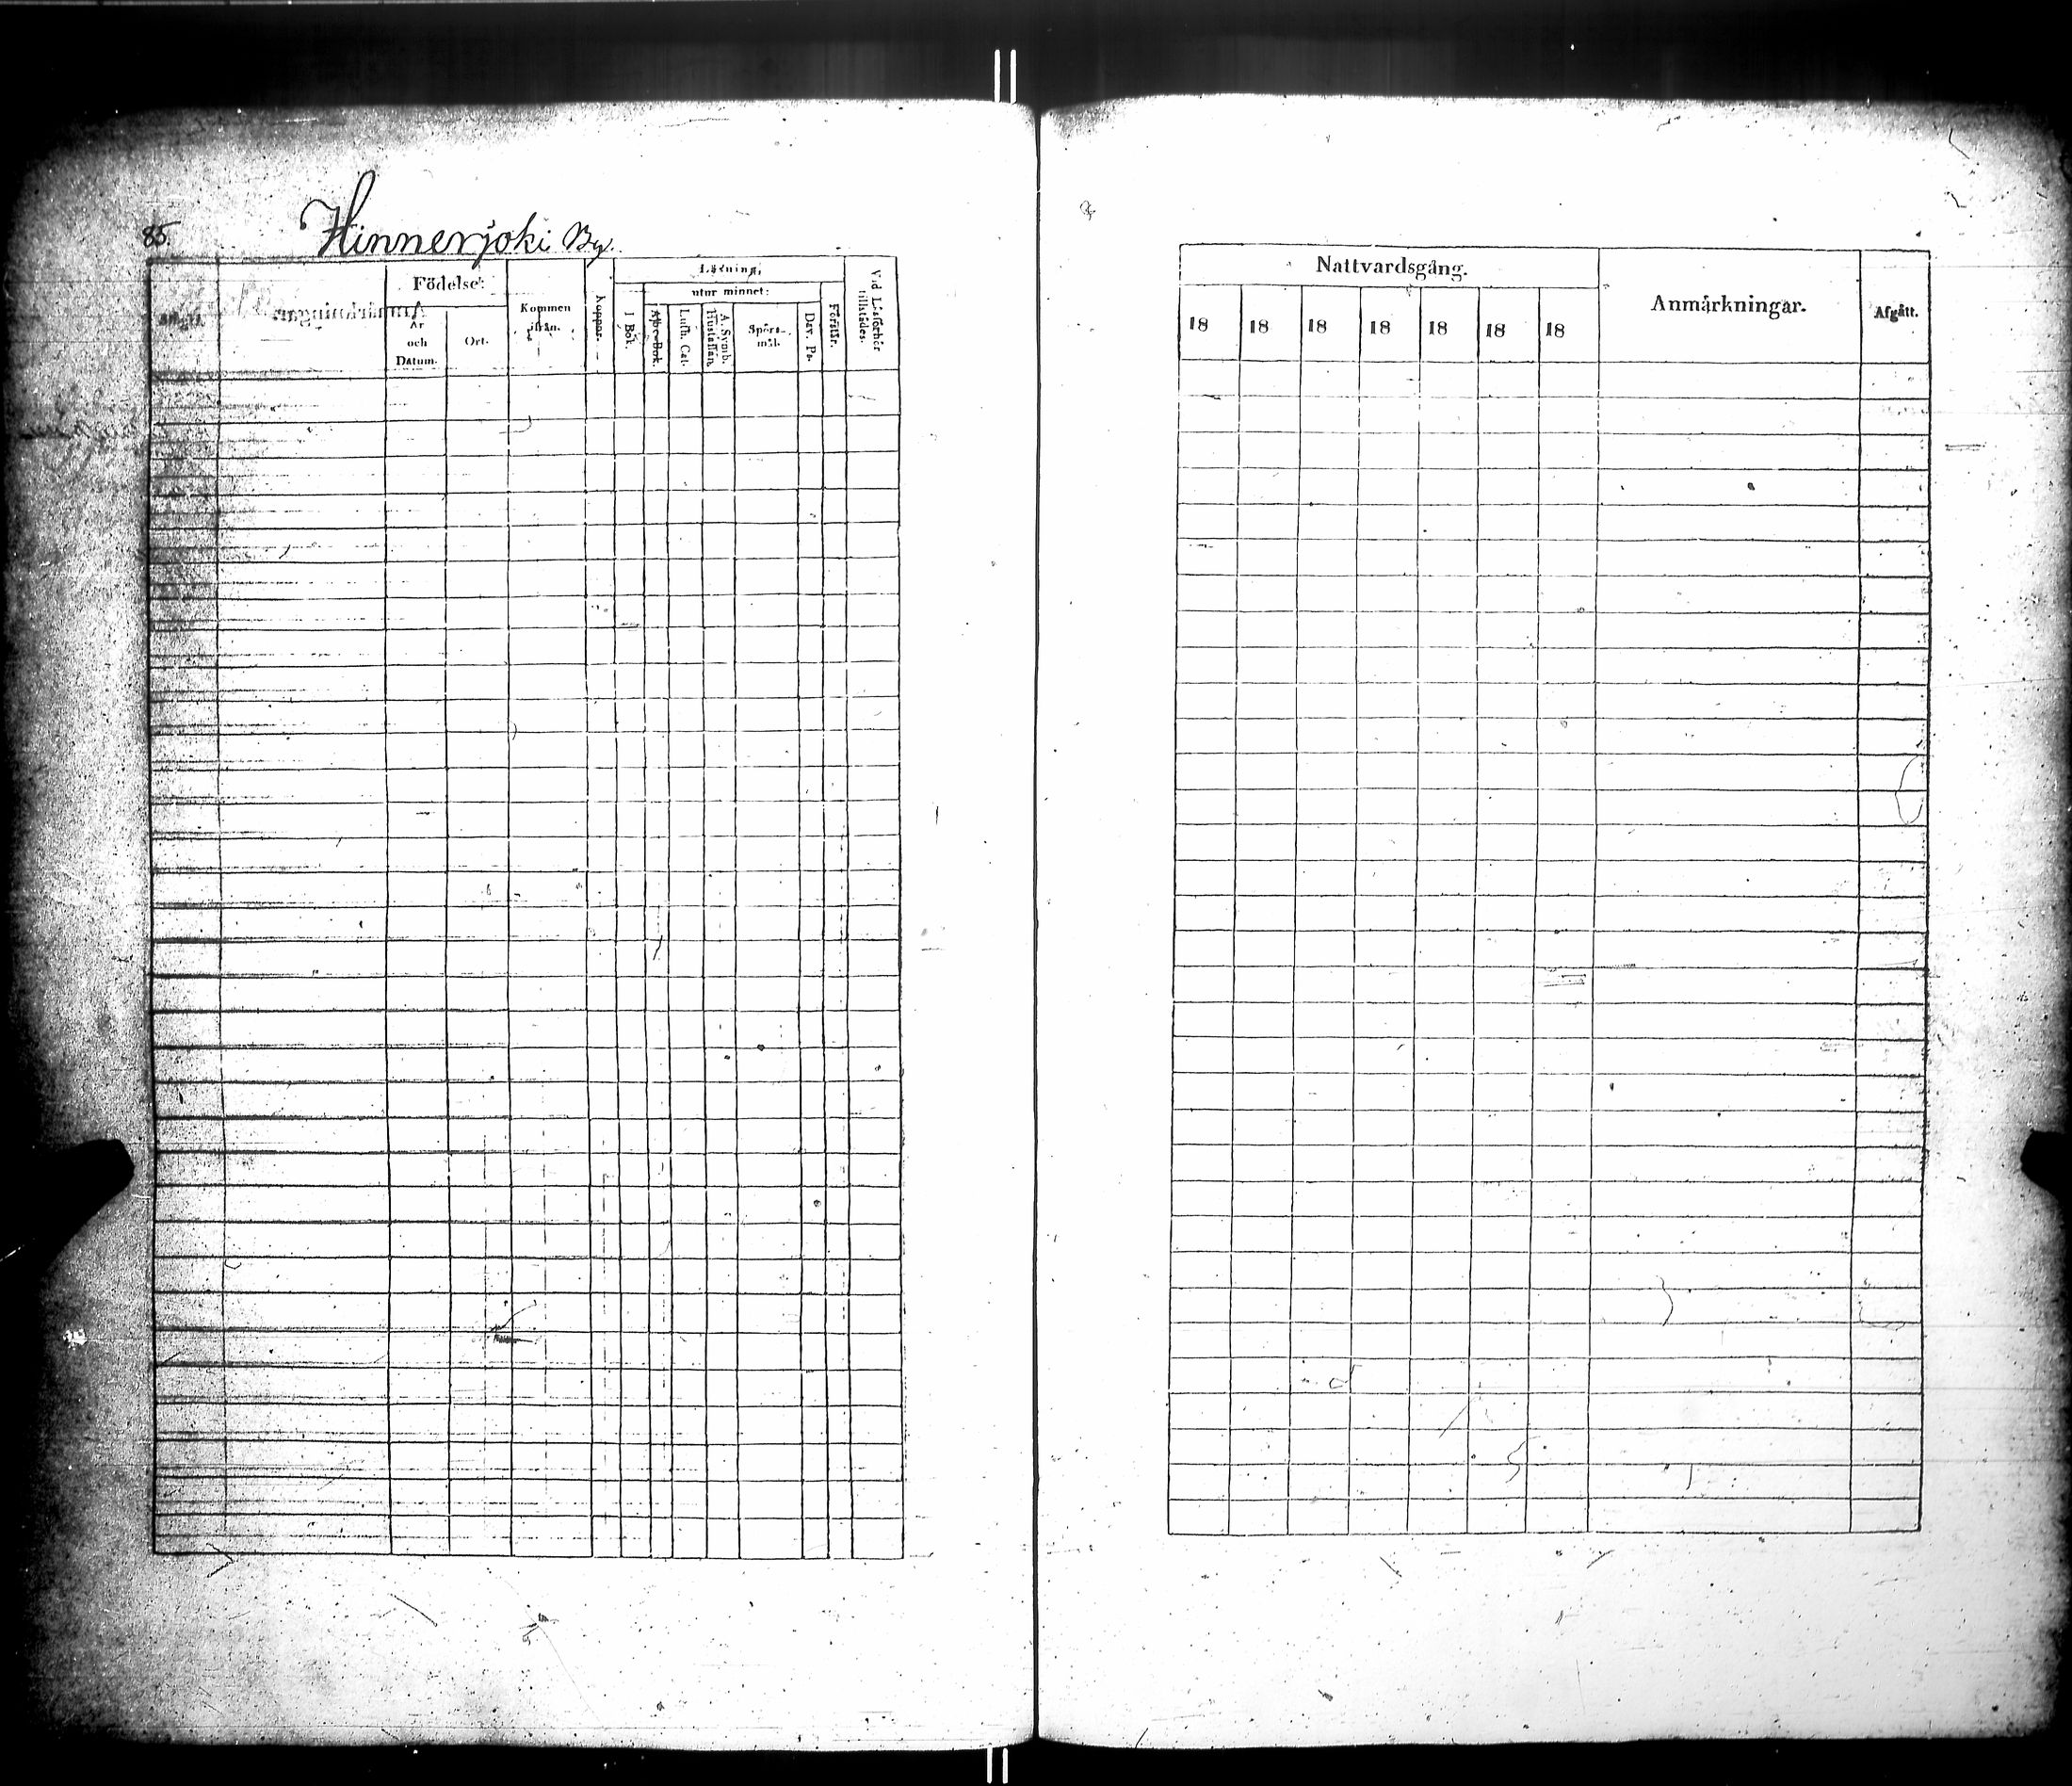 85.
Hinnerjoki By.
Födelse:
År
och
Datum.
Ort.
Kommen
ifrån.
Koppor.
Läsning,
utur minnet:
I Bok.
Abc-Bok.
Luth. Cat.
A. Symb.
Hustaflan
Spörs-
mål.
Dav. Ps.
Förstår.
Vid Läsförhör
tillstädes.
Anmärkningar.
Afgått.
Nattvardsgång.
18 18 18 18 18 18 18
Anmärkningar.
Afgått.